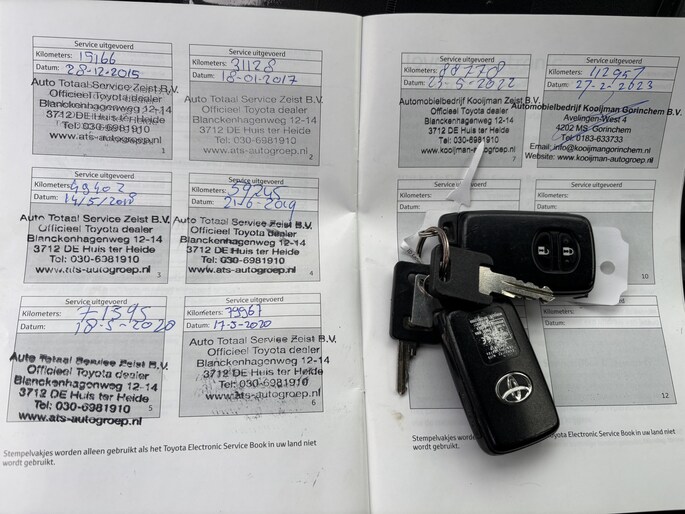 Service uitgevoerd
Kilometers: 15166
Datum: 28-12-2015
Auto Totaal Service Zeist B.V.
Officieel Toyota dealer
Blanckenhagenweg 12-14
3712 DE Huis ter Heide
Tel: 030-6981910
1
Service uitgevoerd
Kilometers: 31128
Datum: 18-01-2017
Auto Totaal Service Zeist B.V.
Officieel Toyota dealer
Blanckenhagenweg 12-14
3712 DE Huis ter Heide
Tel: 030-6981910
www.ats-autogroep.nl
2
Service uitgevoerd
Kilometers: 49402
Datum: 14/5/2018
Auto Totaal Service Zeist B.V.
Officieel Toyota dealer
Blanckenhagenweg 12-14
3712 DE Huis ter Heide
www.ats-autogroep.nl
3
Service uitgevoerd
Kilometers: 59245
Datum: 21-6-2019
Auto Totaal Service Zeist B.V.
Officieel Toyota dealer
Blanckenhagenweg 12-14
3712 DE Huis ter Heide
Tel: 030-6981910
www.ats-autogroep.nl
4
Service uitgevoerd
Kilometers: 71395
Datum: 18-5-2020
Auto Totaal Service Zeist B.V.
Officieel Toyota dealer
Blanckenhagenweg 12-14
3712 DE Huis ter Heide
Tel: 030-6981910
www.ats-autogroep.nl
5
Service uitgevoerd
Kilometers: 79967
Datum: 17-3-2020
Auto Totaal Service Zeist B.V.
Officieel Toyota dealer
Blanckenhagenweg 12-14
3712 DE Huis ter Heide
Tel: 030-6981910
www.ats-autogroep.nl
6
Stempelvakjes worden alleen gebruikt als het Toyota Electronic Service Book in uw land niet
wordt gebruikt.
Service uitgevoerd
Kilometers: 88778
Datum: 23-5-2022
Automobielbedrijf Kooijman Zeist B.V.
Officieel Toyota dealer
Blanckenhagenweg 12-14
3712 DE Huis ter Heide
Tel: 030-6981910
www.kooijman-autogroep.nl
7
Service uitgevoerd
Kilometers: 112957
Datum: 27-2-2023
Automobielbedrijf Kooijman Gorinchem B.V.
Avelingen-West 4
4202 MS Gorinchem
Tel: 0183-633733
Email: info@kooijmangorinchem.nl
Website: www.kooijman-autogroep.nl
Service uitgevoerd
Kilometers:
Datum:
Service uitgevoerd
Kilometers:
Datum:
10
Service uitgevoerd
12
Stempelvakjes worden
Electronic Service Book in uw land niet
wordt gebruikt.